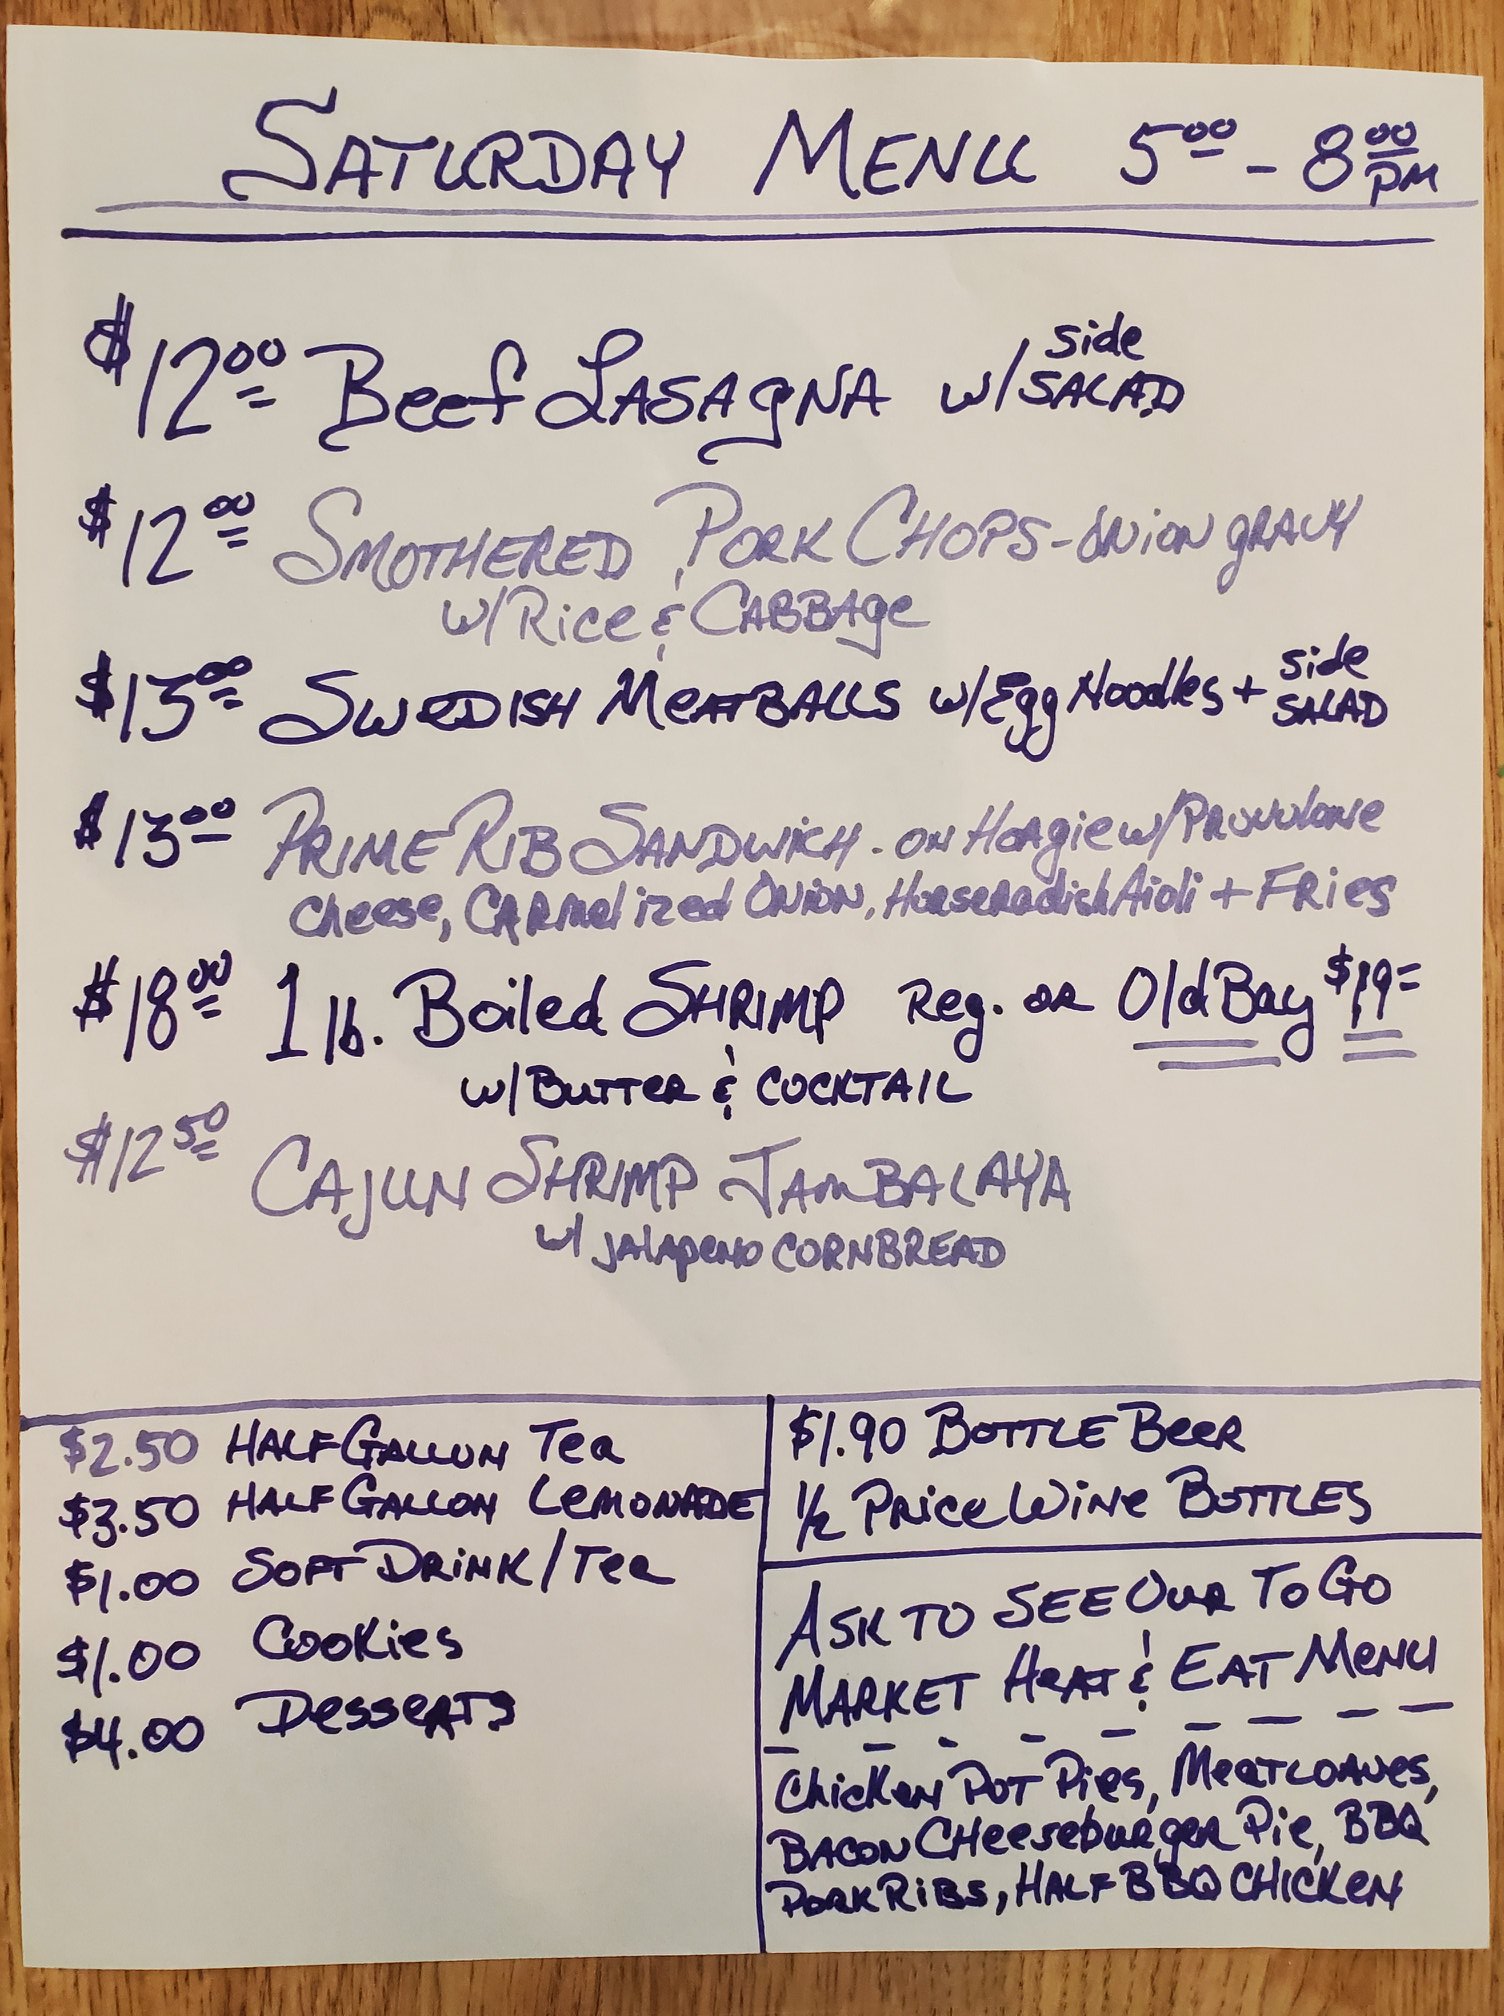 SATURDAY MENU 5⁰⁰ - 8⁰⁰ PM
$12⁰⁰ Beef LASAGNA w/ side SALAD
$12⁰⁰ SMOTHERED PORK CHOPS - ONION GRAVY
w/ Rice & CABBAGE
$13⁰⁰ SWEDISH MEATBALLS w/ Egg Noodles + side SALAD
$13⁰⁰ PRIME RIB SANDWICH - ON HOAGIE w/ PROVOLONE
cheese, CARMELIZED ONION, HORSERADISH AIOLI + FRIES
$18⁰⁰ 1 lb. Boiled SHRIMP Reg. OR Old Bay $19=
w/ BUTTER & COCKTAIL
$12⁵⁰ CAJUN SHRIMP JAMBALAYA
w/ JALAPENO CORNBREAD
$2.50 HALF GALLON Tea
$3.50 HALF GALLON LEMONADE
$1.00 SOFT DRINK / Tea
$1.00 COOKIES
$4.00 DESSERTS
$1.90 BOTTLE BEER
1/2 PRICE WINE BOTTLES
ASK TO SEE OUR TO GO
MARKET HEAT & EAT MENU
Chicken POT PIES, MEATLOAVES,
BACON CHEESEBURGER PIE, BBQ
PORK RIBS, HALF BBQ CHICKEN